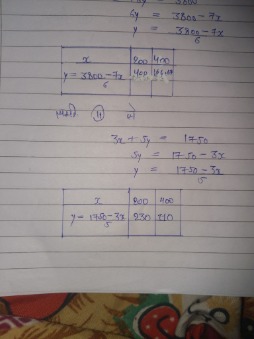 6y = 3800 - 7x
y = 3800 - 7x / 6
x | 200 | 400
y = 3800 - 7x / 6 | 400
3x + 5y = 1750
5y = 1750 - 3x
y = 1750 - 3x / 5
x | 200 | 400
y = 1750 - 3x / 5 | 230 | 110